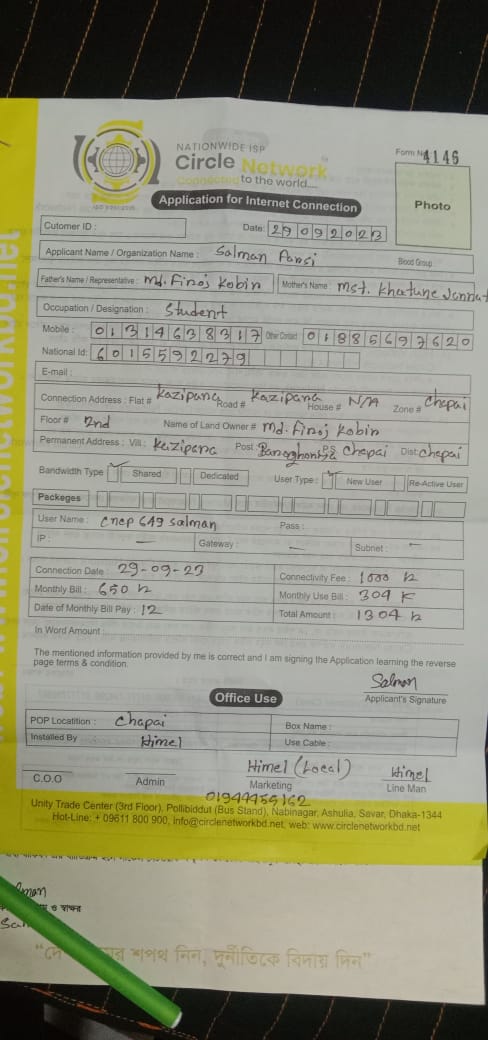 NATIONWIDE ISP
Circle Network
Connected to the world....
ISO 9001:2015
Form No 4146
Application for Internet Connection
Photo
Cutomer ID :
Date: 29092023
Applicant Name / Organization Name : Salman Farsi Blood Group :
Father's Name / Representative : Md. Firoj Kobir Mother's Name : Mst. Khatune Jannat
Occupation / Designation : Student
Mobile : 01314638317 Other Contact 01885697620
National Id: 6015592279
E-mail :
Connection Address : Flat # Kazipara Road # Kazipara House # N/A Zone # Chapai
Floor # 2nd Name of Land Owner # Md. Firoj Kobir
Permanent Address : Vill : Kazipara Post : PS Chapai Dist: Chapai
Bandwidth Type Shared Dedicated User Type : New User Re-Active User
Packeges
User Name : cnep649salman Pass :
IP : — Gateway : — Subnet : —
Connection Date : 29-09-23 Connectivity Fee : 1000
Monthly Bill : 650 Monthly Use Bill : 304
Date of Monthly Bill Pay : 12 Total Amount : 1304
In Word Amount :
The mentioned information provided by me is correct and I am signing the Application learning the reverse
page terms & condition.
Salman
Applicant's Signature
Office Use
POP Locatition : Chapai Box Name :
Installed By Himel Use Cable :
Himel (Local) Himel
C.O.O Admin Marketing Line Man
01944459162
Unity Trade Center (3rd Floor), Pollibiddut (Bus Stand), Nabinagar, Ashulia, Savar, Dhaka-1344
Hot-Line: + 09611 800 900, info@circlenetworkbd.net, web: www.circlenetworkbd.net
ও স্বাক্ষর
শপথ নিন, দুর্নীতিকে বিদায় দিন"